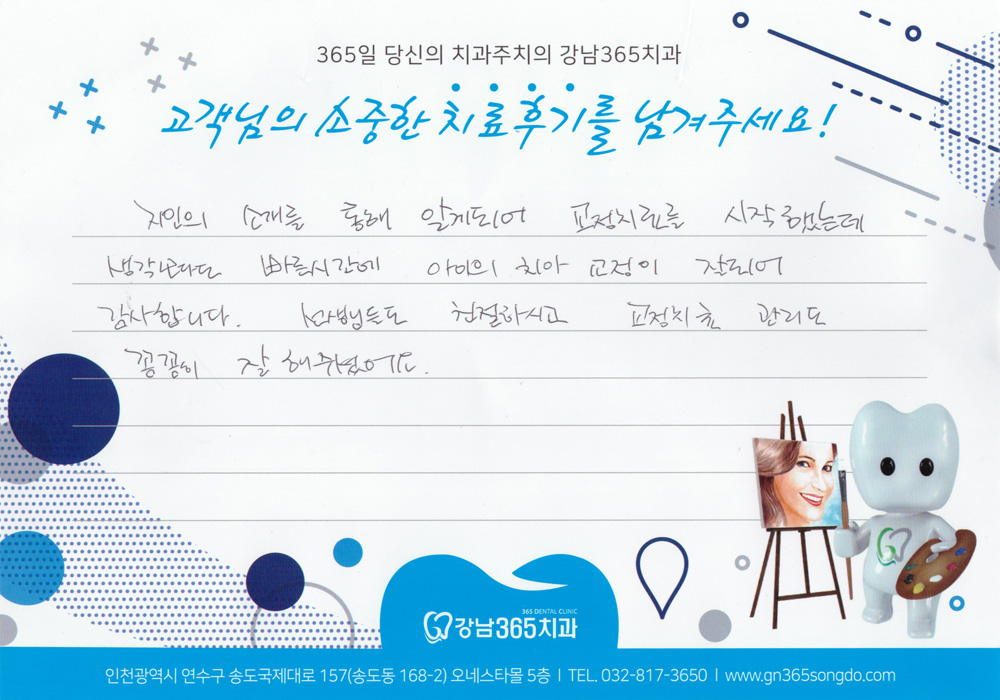 365일 당신의 치과주치의 강남365치과
고객님의 소중한 치료후기를 남겨주세요!
지인의 소개를 통해 알게되어 교정치료를 시작했는데
생각보다도 빠른시간에 아이의 치아 교정이 잘되어
감사합니다. 선생님들도 친절하시고 교정치료 관리도
꼼꼼히 잘 해주셨어요.
365 DENTAL CLINIC
강남365치과
인천광역시 연수구 송도국제대로 157(송도동 168-2) 오네스타몰 5층 | TEL. 032-817-3650 | www.gn365songdo.com